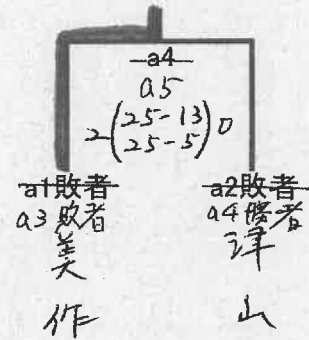 a4
a5
2(25-13
25-5)0
a1敗者 a2敗者
a3敗者 a4勝者
美作 津山